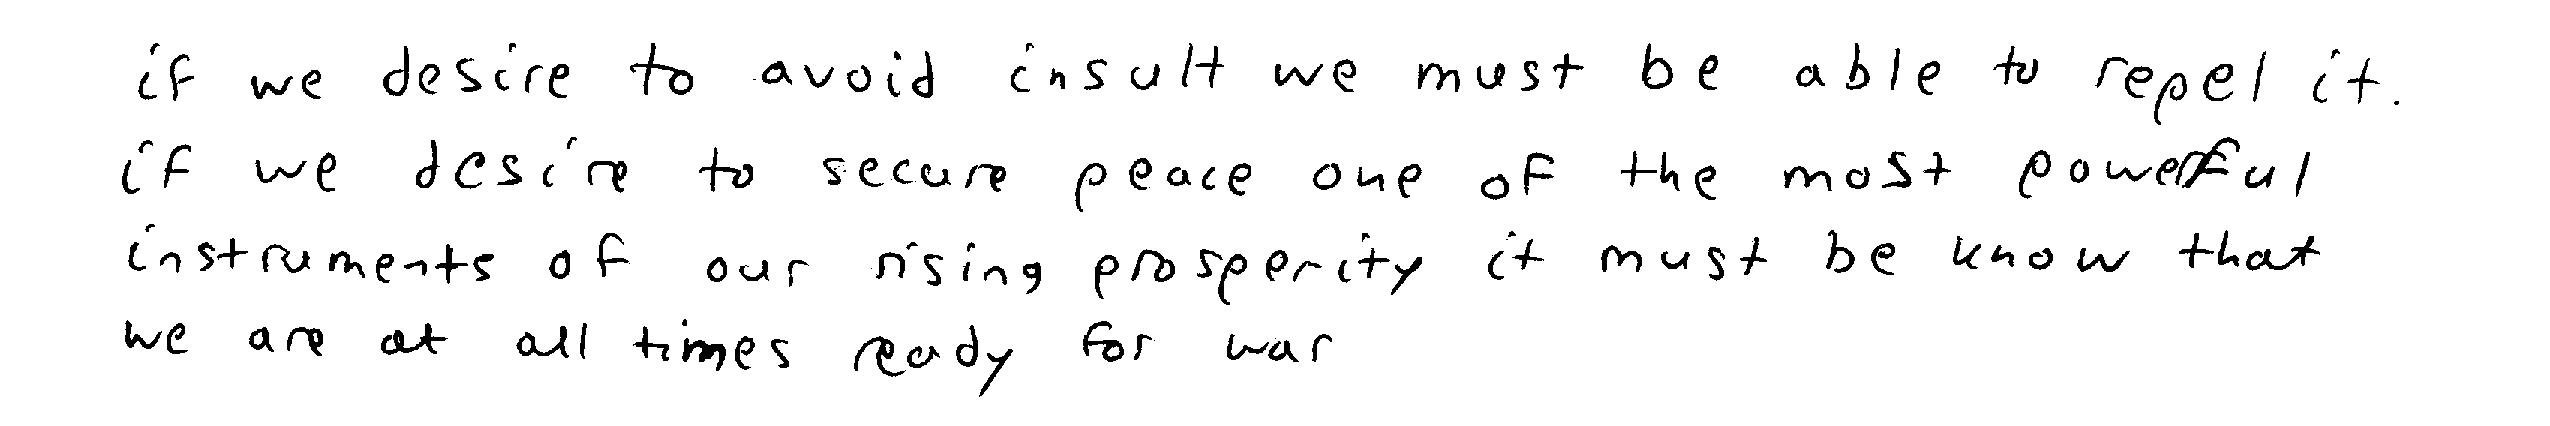 if we desire to avoid insult we must be able to repel it.
if we desire to secure peace one of the most powerful
instruments of our rising prosperity it must be know that
we are at all times ready for war